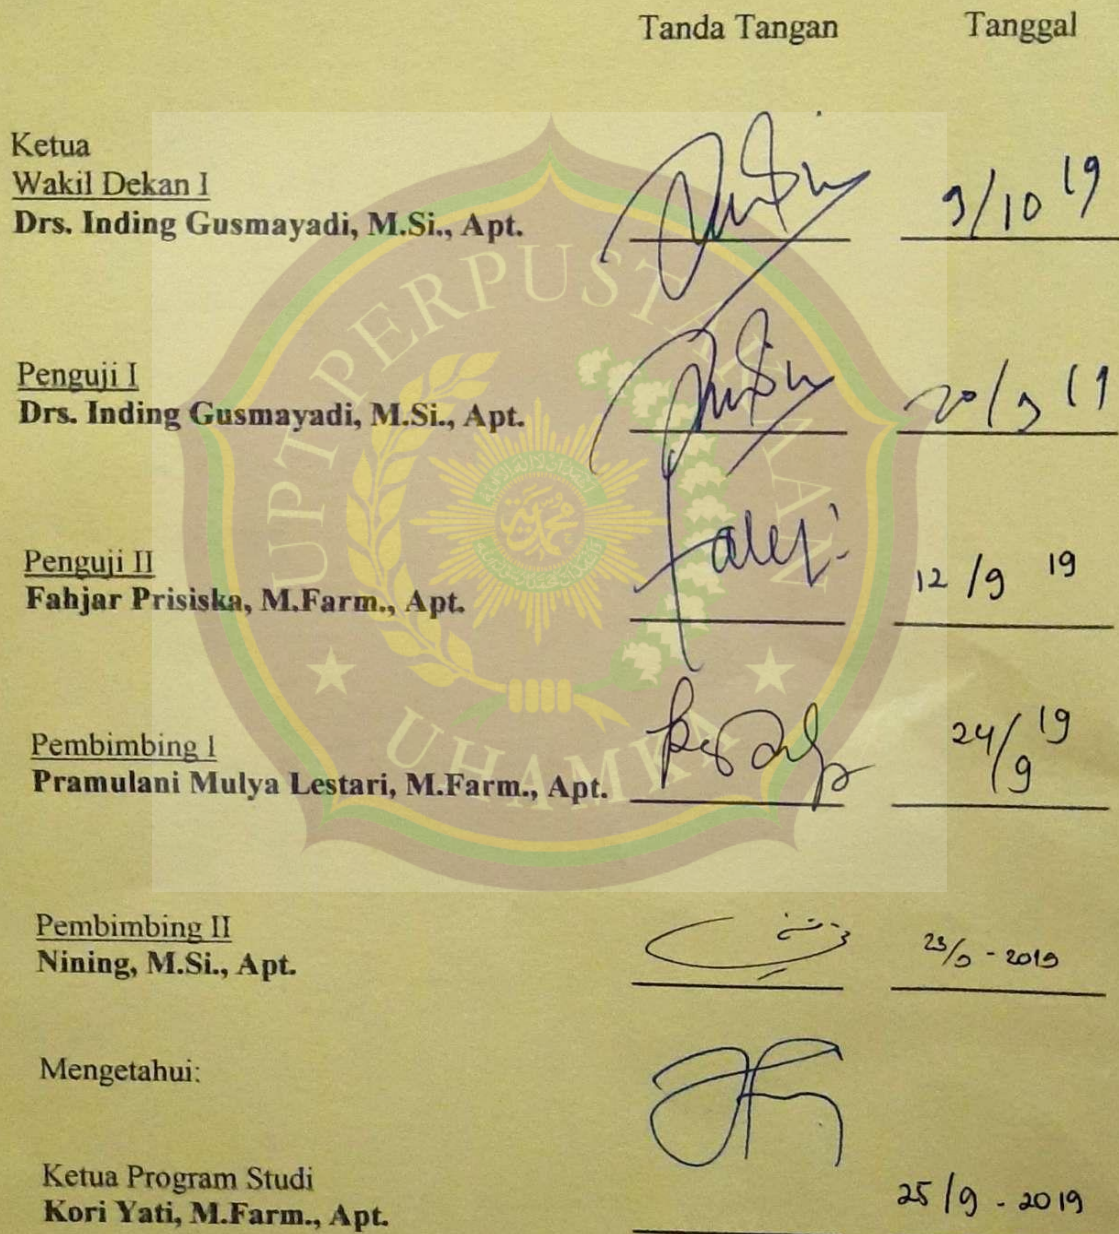 Tanda Tangan Tanggal
Ketua
Wakil Dekan I
Drs. Inding Gusmayadi, M.Si., Apt. 9/10 19
Penguji I
Drs. Inding Gusmayadi, M.Si., Apt. 20/9 19
Penguji II
Fahjar Prisiska, M.Farm., Apt. 12/9 19
Pembimbing I
Pramulani Mulya Lestari, M.Farm., Apt. 24/9 19
Pembimbing II
Nining, M.Si., Apt. 23/9 - 2019
Mengetahui:
Ketua Program Studi
Kori Yati, M.Farm., Apt. 25/9 - 2019
UPT PERPUSTAKAAN
UHAMKA